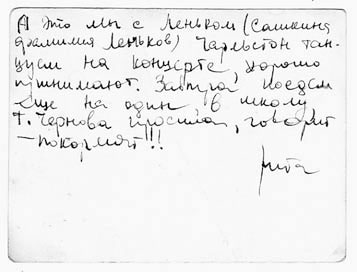 А это мы с Леньком (Сашкина
фамилия Леньков) Чарльстон тан-
цуем на концерте, хорошо
принимают. Завтра поедем
еще на один, в школу
Т. Чернова просила, говорит
— покормят!!!
Рита